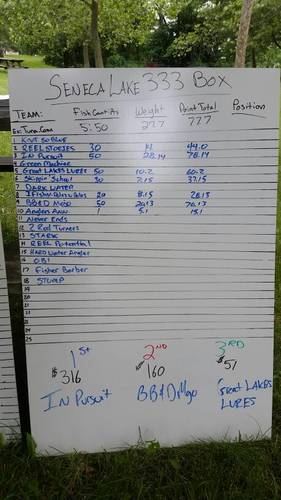 SENECA LAKE 333 BOX
TEAM: Fish Count Pts Weight Point Total Position
Ex: Tuna.Com 5:50 27.7 77.7
1 Knot So Blue
2 REEL STORIES 30 14 44.0
3 IN Pursuit 50 28.14 78.14
4 Green Machine
5 Great LAKES LURES 50 10.2 60.2
6 30 7.15 37.15
7 DARK WATER
8 20 8.15 28.15
9 BB&D Mojo 50 20.13 70.13
10 Anglers Ann 5.1 15.1
11 Never Ends
12 2 Rod Turners
13 STARK
14 REEL Potential
15 HARD Water Angler
16 OBI
17 Fisher Barber
18 STUMP
19
20
21
22
23
24
25
1st 2ND 3RD
$316 $160 $51
IN Pursuit BB&D Mojo Great LAKES
LURES